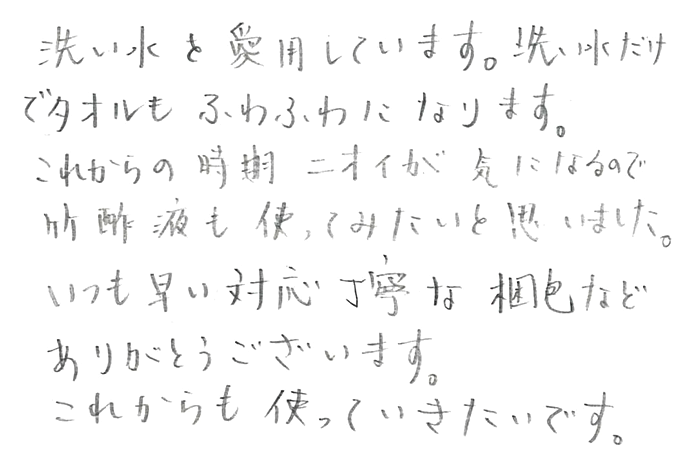 洗い水を愛用しています。洗い水だけ
でタオルも ふわふわに なります。
これからの 時期 ニオイが 気になるので
竹酢液も 使ってみたいと思いました。
いつも 早い 対応 丁寧な 梱包など
ありがとうございます。
これからも 使っていきたいです。